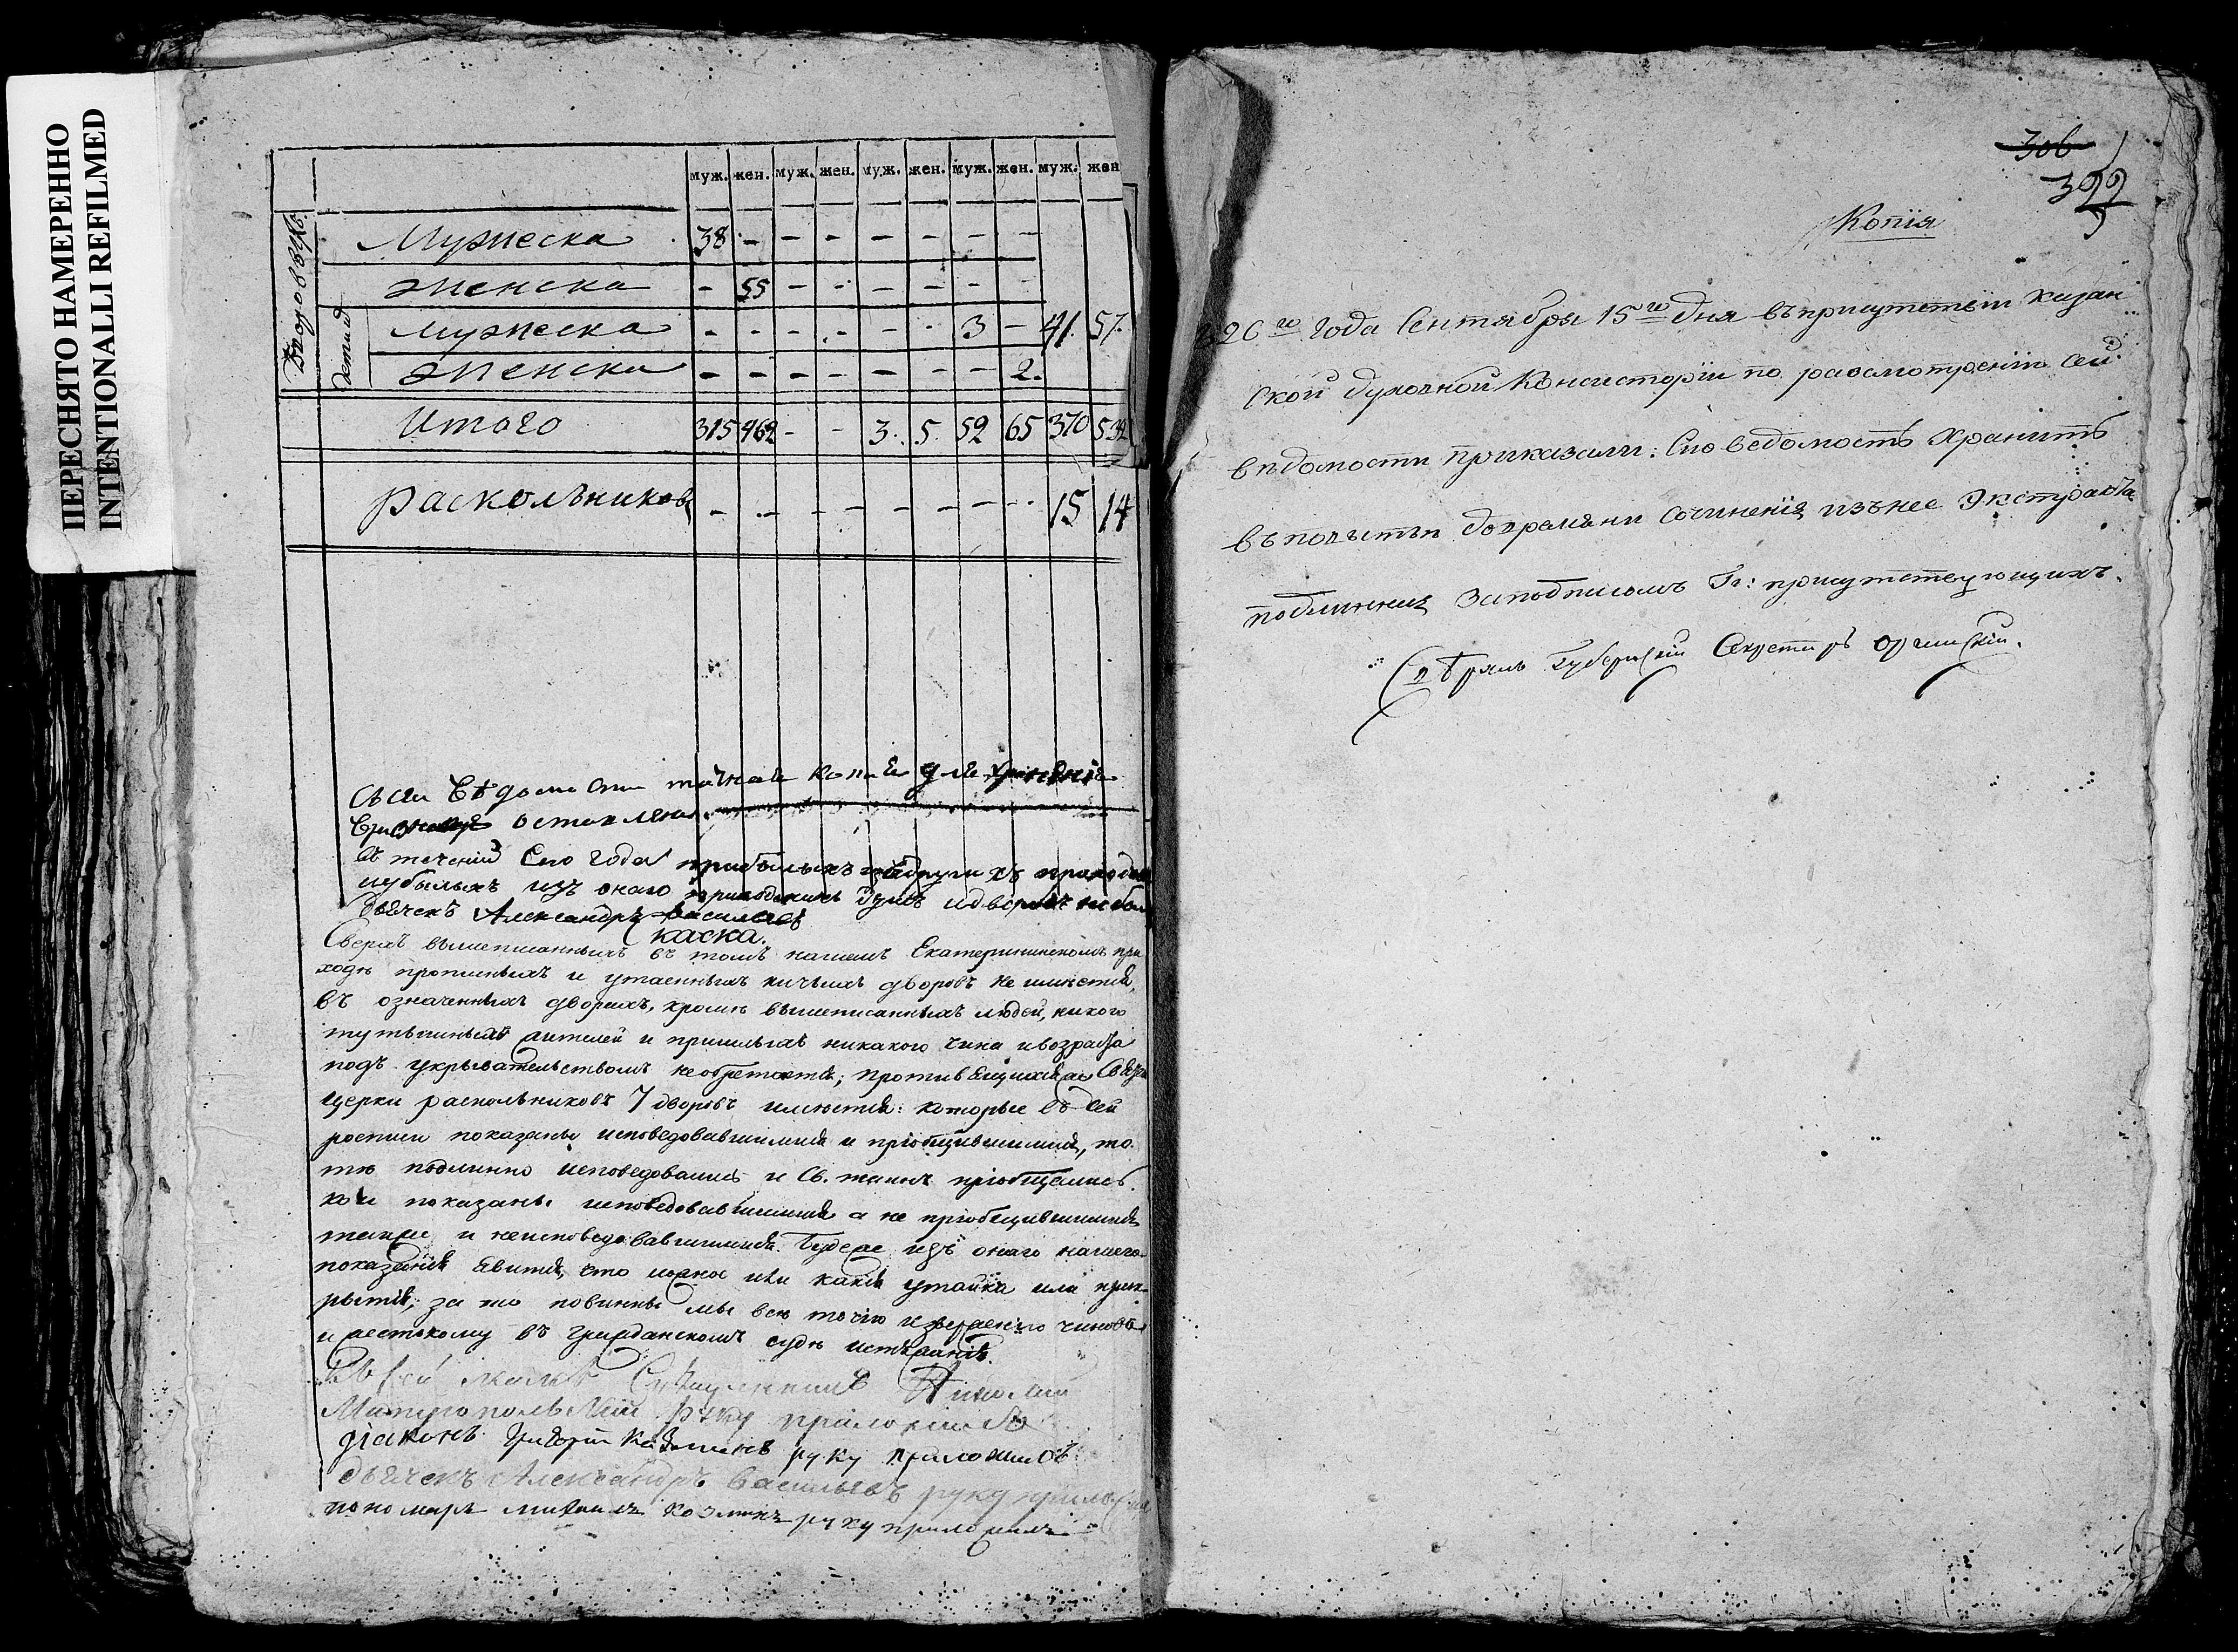 ПЕРЕСНЯТО НАМЕРЕННО
INTENTIONALLI REFILMED
муж. жен. муж. жен. муж. жен. муж. жен. муж. жен
Мужеска 38 - - - - - - -
Женска - 55 - - - - - -
детей
Мужеска - - - - - - 3 - 41. 57.
Женска - - - - - - - 2.
Итого 315 462 - - 3. 5. 52 65 370 532
Раскольниковъ - - - - - - - - 15 14
Съ сей Ведомости точная копия для хранения
оставлена.
въ течении сего года прибылыхъ
и убылыхъ изъ онаго душъ и дворовъ не
Дьячекъ Александръ Васильевъ
Скаска.
Сверхъ вышеписанныхъ въ томъ нашемъ Екатерининскомъ при
ходѣ прописныхъ и утаенныхъ ничьихъ дворовъ не имѣется,
въ означенныхъ дворахъ, кромѣ вышеписанныхъ людей, никого
тутъшныхъ жителей и пришлыхъ никакого чина и возраста
подъ укрывательствомъ необретается; противящихся Святей
церкви раскольниковъ 7 дворовъ имѣется: которые въ сей
росписи показаны исповедовавшимися и пріобщившимися, то
тѣ подлинно исповедовались и Св. таинъ пріобщались.
кои показаны исповедовавшимися а не пріобщившимися
также и неисповедовавшимися. Буде же изъ онаго нашего
показанія явится, что ложное или какая утайка или прик-
рытія; за то повинны мы всѣ точію изверженію чиновъ
и жестокому въ гражданскомъ судѣ истязанію.
Къ сей Священникъ Николай
Митропольский руку приложилъ
діаконъ Григорій руку приложилъ
дьячекъ Александръ Васильевъ руку приложилъ
пономарь Михаилъ Козминъ руку приложилъ
306
399
Копія
826го года Сентября 15го дня въ присутствіи Казан
ской Духовной Консисторіи по разсмотреніи сей
вѣдомости приказали: Сію ведомость хранить
въ повытьи до времяни сочиненія изъ нее Экстракта
подлинная за подписомъ Гг: присутствующихъ.
Свѣрялъ Губернскій Секретарь